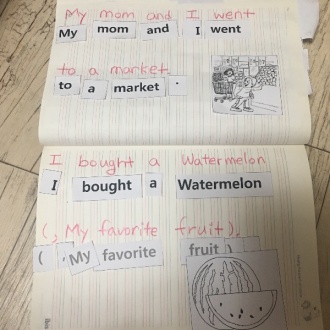 My mom and I went
My mom and I went
to a market.
to a market .
I bought a Watermelon
I bought a Watermelon
(, My favorite fruit).
( , My favorite fruit )